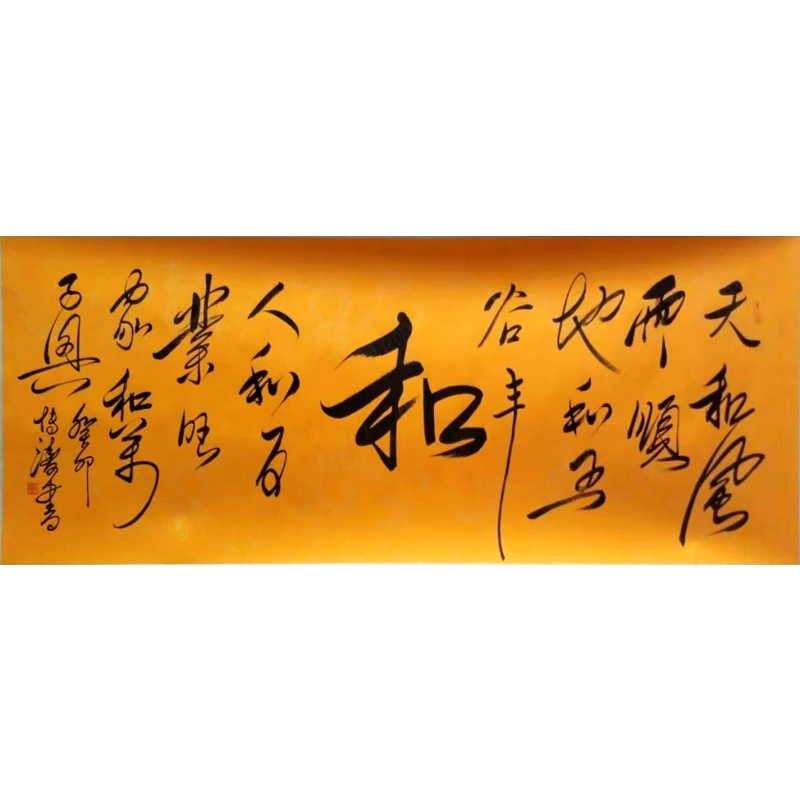 天和風
雨順
地和五
谷丰
和
人和百
業旺
家和萬
子興
癸卯
博濤書